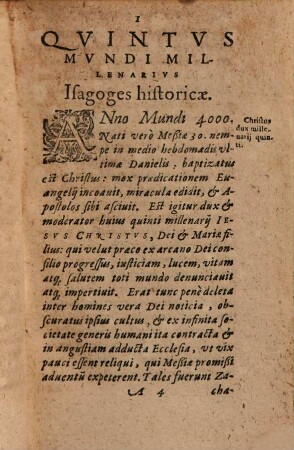 I
QVINTVS
MVNDI MIL-
LENARIVS
Isagoges historicæ.
ANno Mundi 4000.
Nati verò Meßiæ 30. nem-
pe in medio hebdomadis vl-
timæ Danielis, baptizatus
est Christus: mox prædicationem Eu-
angelij incoauit, miracula edidit, & A-
postolos sibi asciuit. Est igitur dux &
moderator huius quinti millenarij IE-
SVS CHRISTVS, Dei & Mariæ fi-
lius: qui velut præco ex arcano Dei con-
silio progressus, iusticiam, lucem, vitam
atq; salutem toti mundo denunciauit
atq; impertiuit. Erat tunc penè deleta
inter homines vera Dei noticia, ob-
scuratus ipsius cultus, & ex infinita so-
cietate generis humani ita contracta &
in angustiam adducta Ecclesia, vt vix
pauci essent reliqui, qui Meßiæ promißi
aduentũ expeterent. Tales fuerunt Za-
A 4 cha-
Christus
dux mille-
narij quin-
ti.